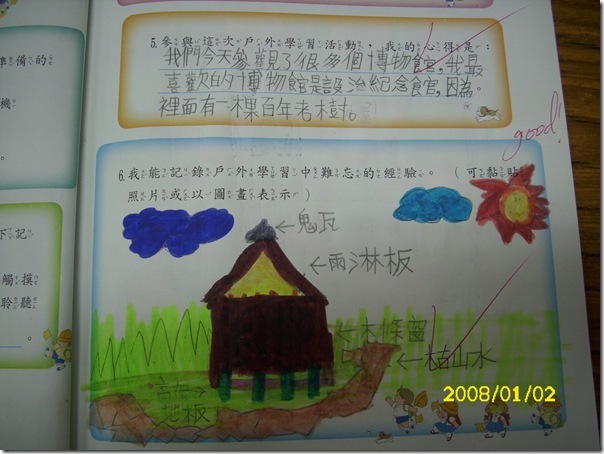 準備的
機
。
下記
觸摸
聆聽
。
5.參與這次戶外學習活動，我的心得是：
我們今天參觀了很多個博物館,我最
喜歡的博物館是設治紀念館,因為
裡面有一棵百年老樹。
good!
6.我能記錄戶外學習中難忘的經驗。（可黏貼
照片或以圖畫表示）
←鬼瓦
←雨淋板
←木條窗
←枯山水
→
地板
2008/01/02